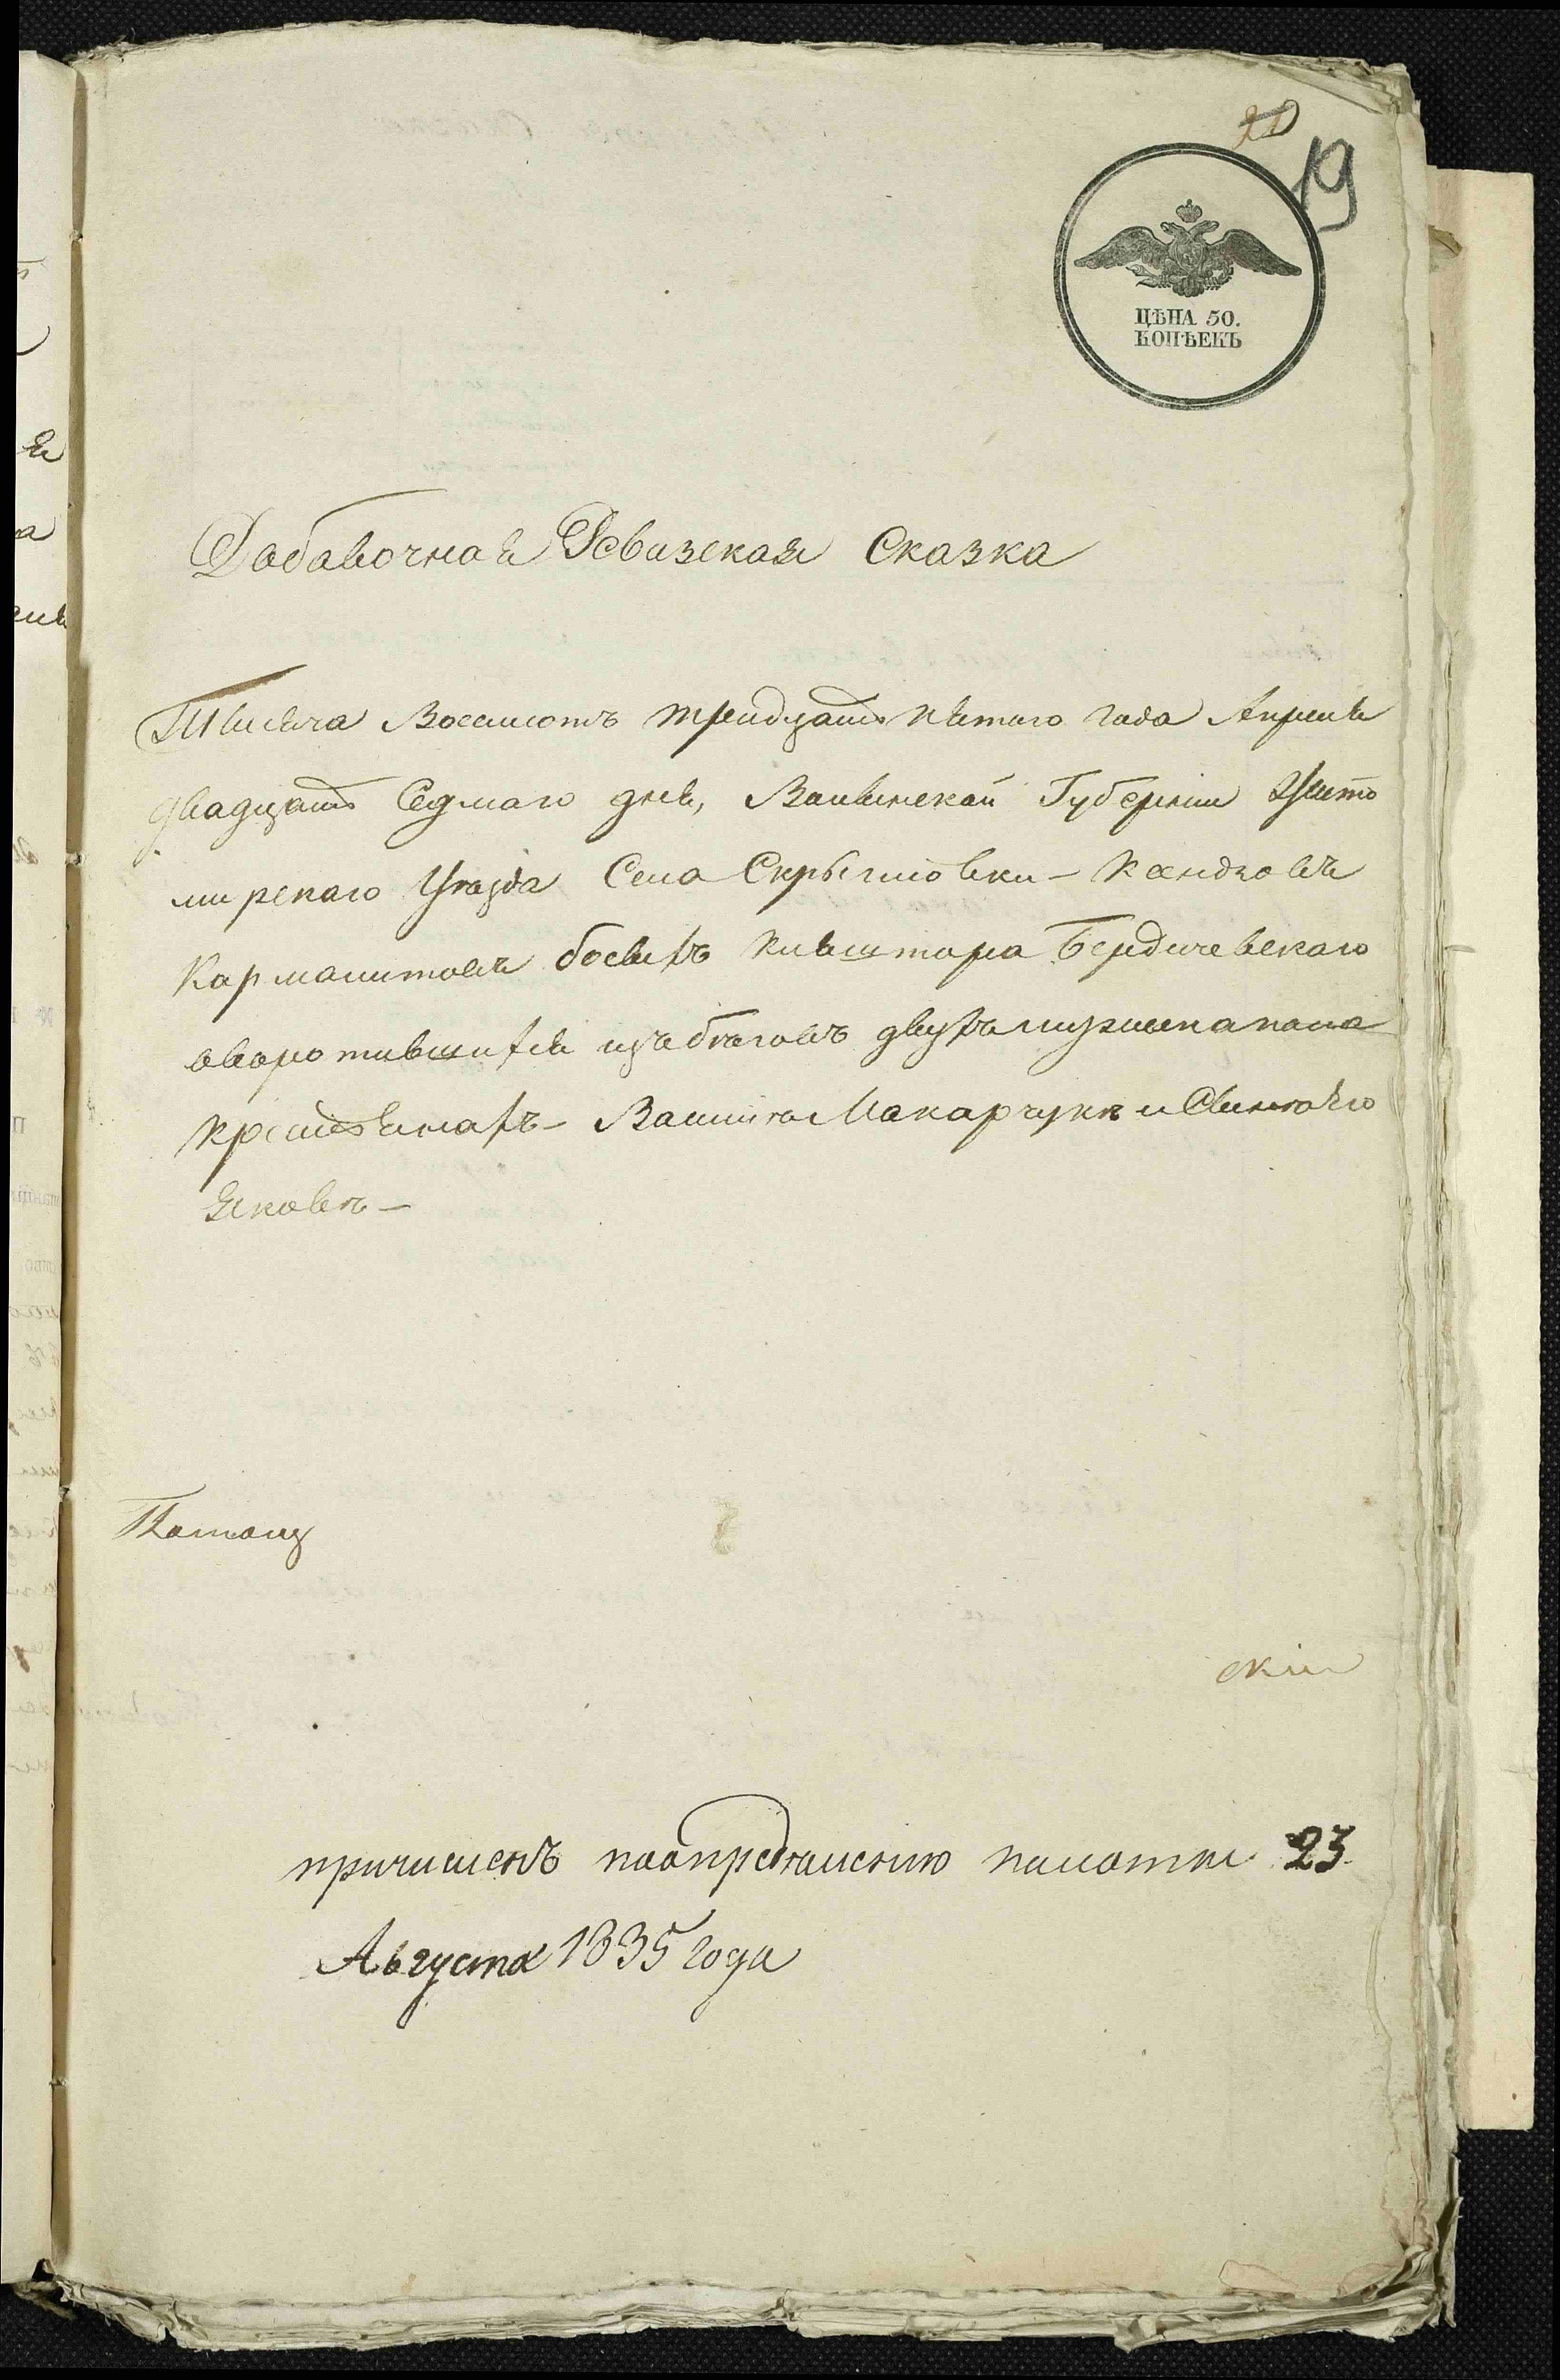 20
19
ЦѢНА 50.
КОПѢЕКЪ
Добавочная Ревизская Сказка
Тысяча Восемсотъ тридцать пятаго года Апреля
двадцать Седмаго дня, Волынской Губернии Жито
мирскаго Уезда Села Скрыгловки - Ксендзовъ
Кармалитовъ босыхъ кляштора Бердичевскаго
оворотившихся изъ беговъ двухъ мужеска пола
крестьянахъ - Макарчуке и
Якове -
Потому
ский
причисленъ поопределению палаты 23
Августа 1835 года